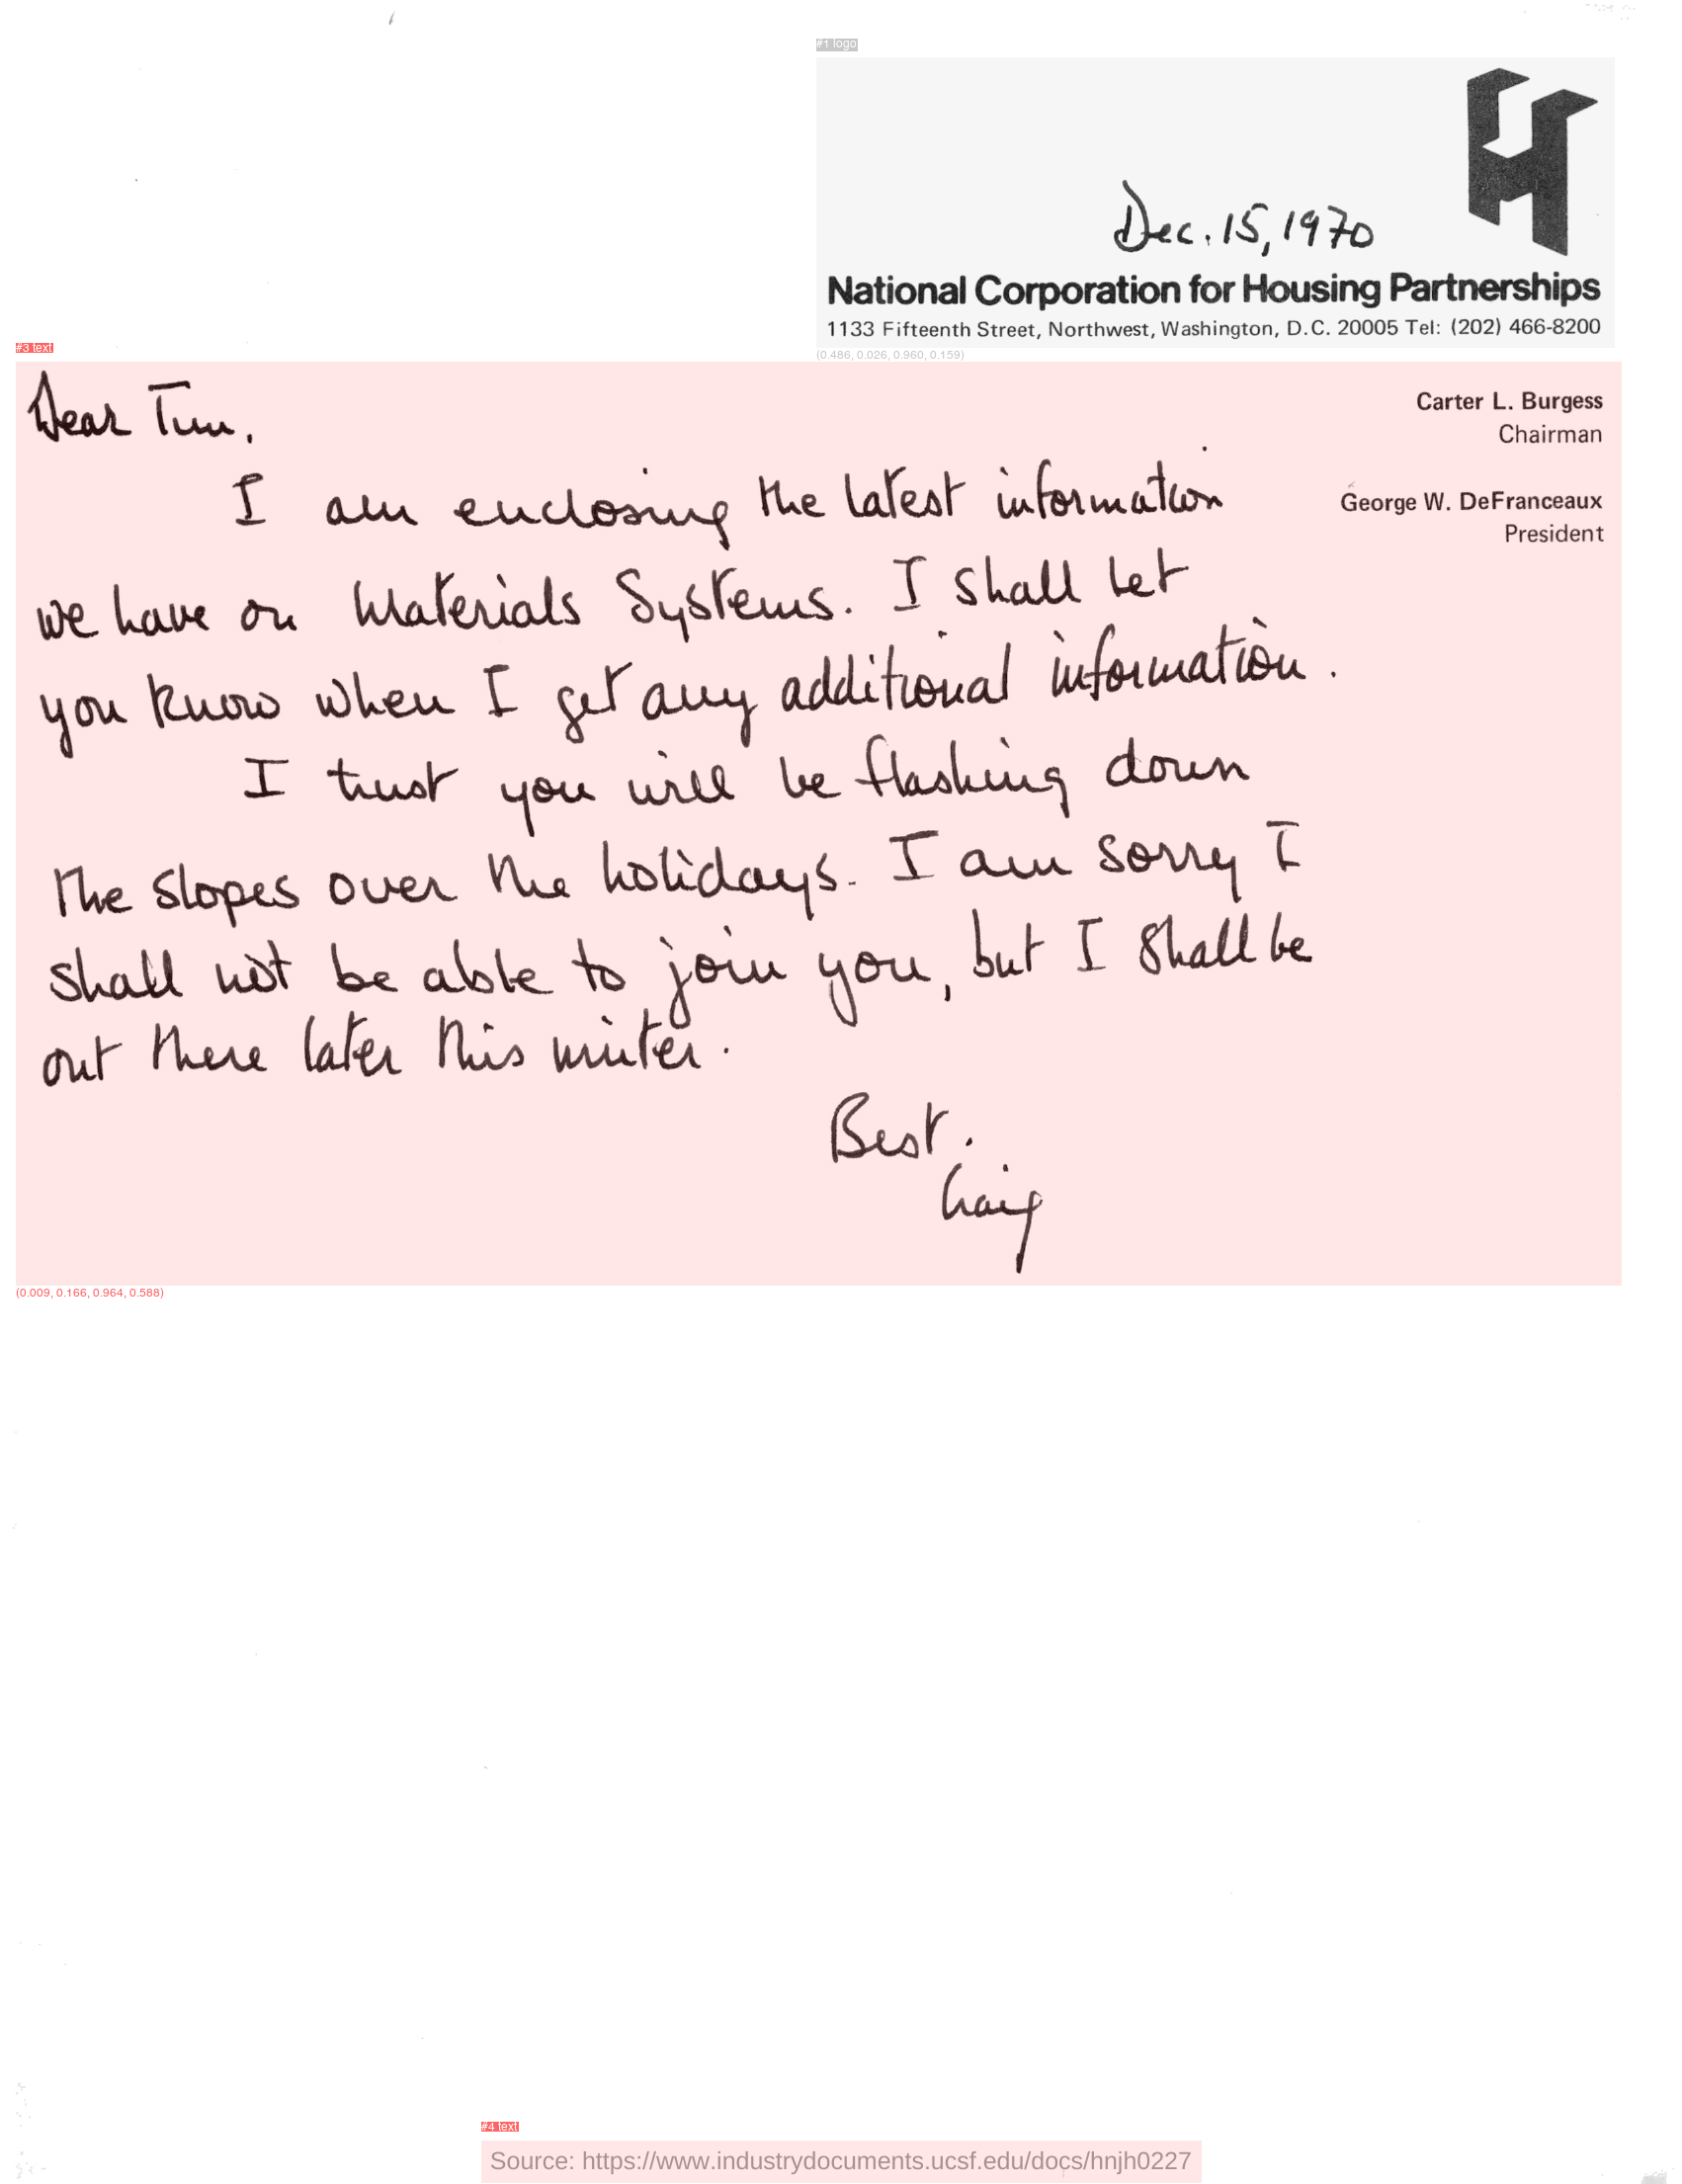 #1 logo
Dec. 15, 1970
National Corporation for Housing Partnerships
1133 Fifteenth Street, Northwest, Washington, D.C. 20005 Tel: (202) 466-8200
(0.486, 0.026, 0.960, 0.159)
#3 text
Carter L. Burgess
Chairman
George W. DeFranceaux
President
Dear Tim,
I am enclosing the latest information
we have on Materials Systems. I shall let
you know when I get any additional information.
I trust you will be flashing down
the slopes over the holidays. I am sorry I
shall not be able to join you, but I shall be
out there later this winter.
Best.
Craig
(0.009, 0.166, 0.964, 0.588)
#4 text
Source: https://www.industrydocuments.ucsf.edu/docs/hnjh0227